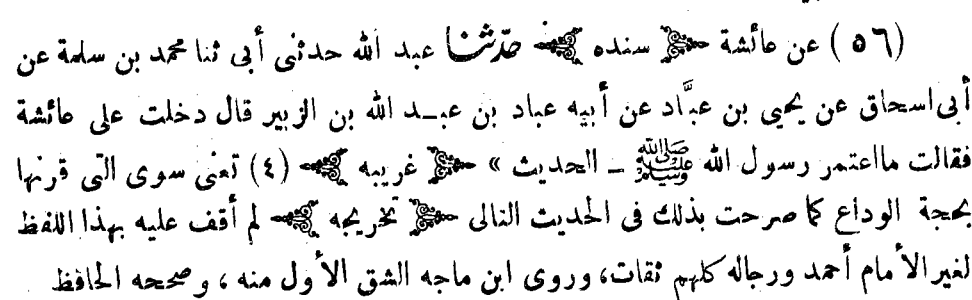 (٥٦) عن عائشة سنده حدثنا عبد الله حدثنى أبى ثنا محمد بن سلمة عن
أبى اسحاق عن يحيى بن عبَّاد عن أبيه عباد بن عبـد الله بن الزبير قال دخلت على عائشة
فقالت مااعتمر رسول الله ﷺ ـ الحديث » غريبه (٤) تعنى سوى التى قرنها
بحجة الوداع كما صرحت بذلك فى الحديث التالى تخريجه لم أقف عليه بهذا اللفظ
لغير الأمام أحمد ورجاله كلهم ثقات، وروى ابن ماجه الشق الأول منه ، وصححه الحافظ